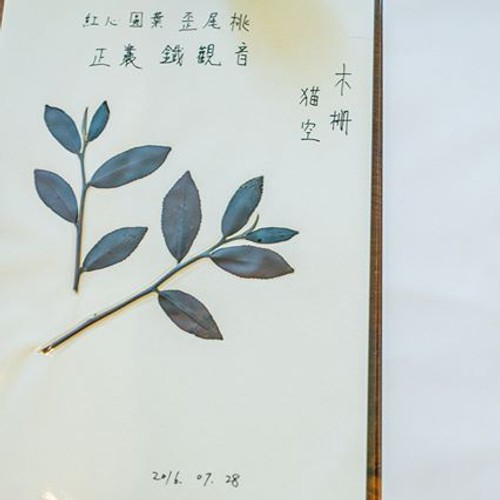 紅心圓葉歪尾桃
正叢鐵觀音
木柵
猫空
2016. 07. 28